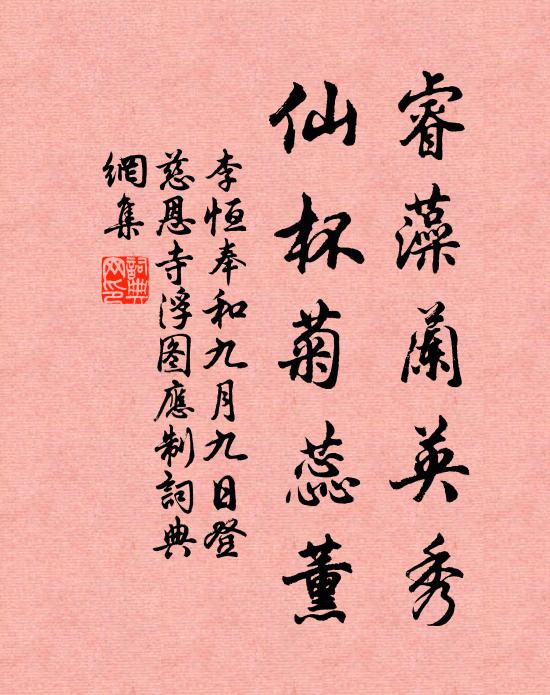 睿藻蘭英秀
仙杯菊蕊薰
李恒奉和九月九日登
慈恩寺浮图應制詞典
網集
詞典
网印